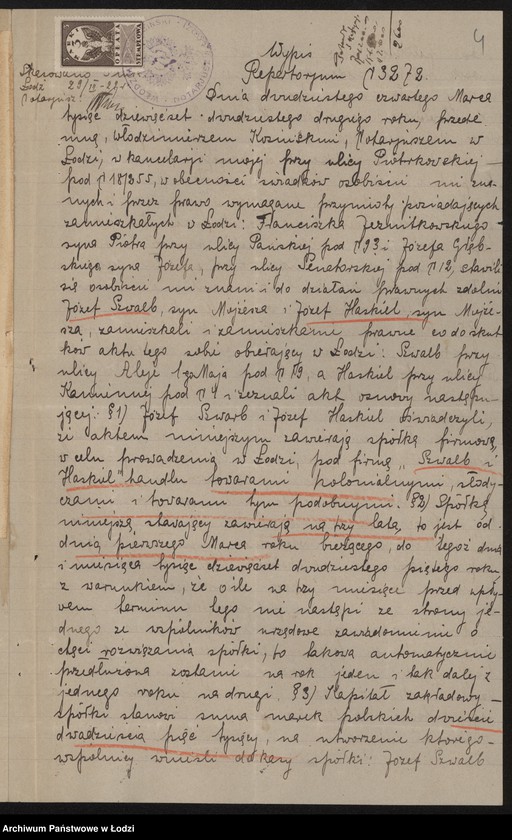 4
Wypis
Repertorjum № 3272.
Łódź 29/IV-22 r.
Notarjusz
2600
OPŁATA STEMPLOWA
Dnia dwudziestego czwartego Marca
tysiąc dziewięćset dwudziestego drugiego roku, przede
mną, Włodzimierzem Kozmińskim, Notaryuszem w
Łodzi, w kancelaryi mojej przy ulicy Piotrkowskiej
pod № 18/355, w obecności świadków osobiście mi zna-
nych i przez prawo wymagane przymioty posiadających
zamieszkałych w Łodzi: Franciszka
syna Piotra przy ulicy Pańskiej pod № 93 i Józefa Głęb-
skiego syna Józefa, przy ulicy Senatorskiej pod № 12, stawili
się osobiście mi znani i do działań prawnych zdolni
Józef Szwalb, syn Mojżesza i Józef Haskiel, syn Mojże-
sza, zamieszkali i zamieszkanie prawne co do skut-
ków aktu tego sobie obierający w Łodzi: Szwalb przy
ulicy Aleje 1go Maja pod № 19, a Haskiel przy ulicy
Kamiennej pod № 1 i zeznali akt osnowy następu-
jącej: §1) Józef Szwarb i Józef Haskiel oświadczyli,
że aktem niniejszym zawierają spółkę firmową,
w celu prowadzenia w Łodzi, pod firmą „Szwalb i
Haskiel" handlu towarami kolonialnymi, słody-
czami i towarami tym podobnymi. §2) Spółkę
niniejszą stawający zawierają na trzy lata, to jest od
dnia pierwszego Marca roku bieżącego, do tegoż dnia
i miesiąca tysiąc dziewięćset dwudziestego piątego roku
z warunkiem, że o ile na trzy miesiące przed upły-
wem terminu tego nie nastąpi ze strony je-
dnego ze wspólników urzędowe zawiadomienie o
chęci rozwiązania spółki, to takowa automatycznie
przedłużoną zostanie na rok jeden i tak dalej z
jednego roku na drugi. §3) Kapitał zakładowy
spółki stanowi suma marek polskich dwieście
dwadzieścia pięć tysięcy, na utworzenie którego
wspólnicy wnieśli do kasy spółki: Józef Szwalb
Archiwum Państwowe w Łodzi